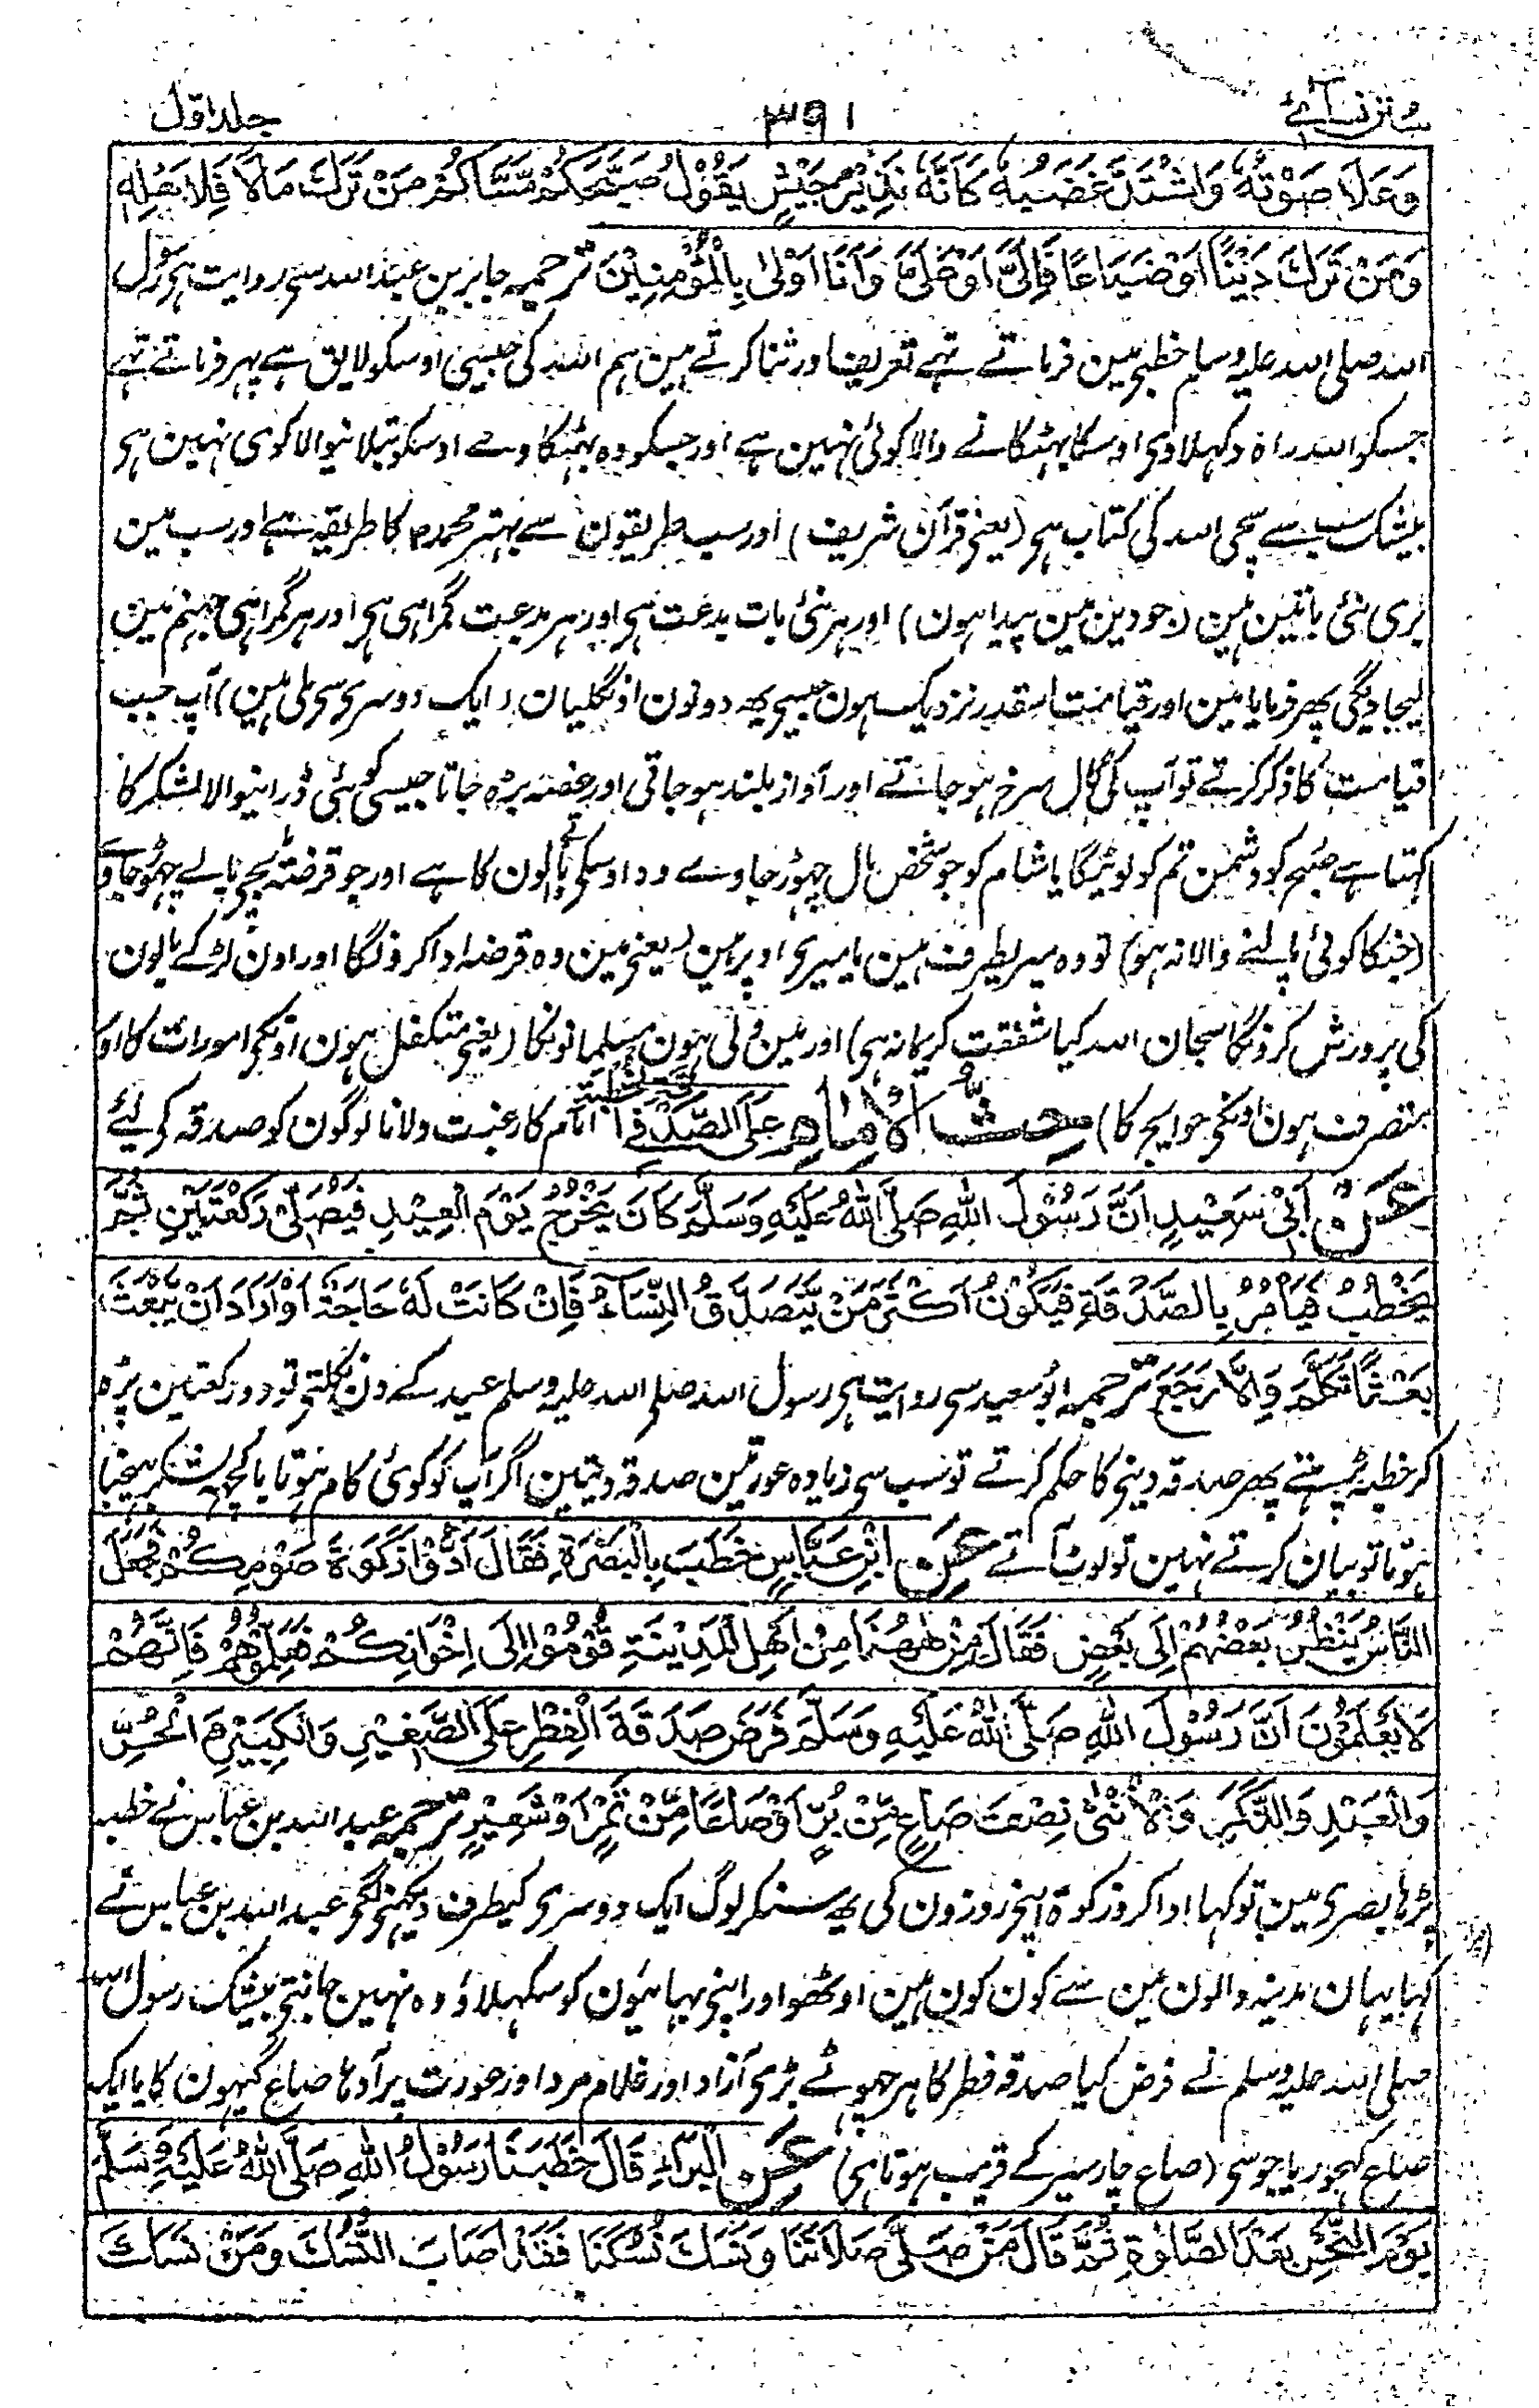 سنن نسائی
۳۹۱
جلد اوّل
وَعَلَا صَوْتُهٗ وَاشْتَدَّ غَضَبُهٗ كَاَنَّهٗ نَذِيْرُ جَيْشٍ يَقُوْلُ صَبَّحَكُمْ مَسَّاكُمْ مَنْ تَرَكَ مَالًا فَلِاَهْلِهٖ
وَمَنْ تَرَكَ دَيْنًا اَوْ ضَيَاعًا فَاِلَيَّ اَوْ عَلَيَّ وَاَنَا اَوْلٰى بِالْمُؤْمِنِيْنَ ترجمہ جابر بن عبد اللہ سے روایت ہی رسول
اللہ صلی اللہ علیہ وسلم خطبے مین فرماتے تھے تعریف اور ثنا کرتے ہین ہم اللہ کی جیسی اوسکو لایق ہے پہر فرماتے تھے
جسکو اللہ راہ دکہلاوی اوسکا بہٹکانے والا کوئی نہین ہے اور جسکو وہ بہٹکاوے اوسکو بتلانیوالا کوی نہین ہی
بیشک سب سے سچی اللہ کی کتاب ہی (یعنے قرآن شریف) اور سب طریقون سے بہتر محمدؐ کا طریقہ ہے اور سب مین
بری نئی باتین ہین (جو دین مین پیدا ہون) اور ہر نئی بات بدعت ہی اور ہر بدعت گمراہی ہی اور ہر گمراہی جہنم مین
لیجاویگی پھر فرمایا مین اور قیامت اسقدر نزدیک ہون جیسی یہ دونون اونگلیان (ایک دوسری سی ملی ہین) آپ جب
قیامت کا ذکر کرتے تو آپ کی گال سرخ ہو جاتے اور آواز بلند ہو جاتی اور غصہ بڑہ جاتا جیسی کوئی ڈرانیوالا لشکر کا
کہتا ہے صبح کو دشمن تم کو لوٹیگا یا شام کو جو شخص مال چہوڑ جاوے وہ اوسکے بالون کا ہے اور جو قرضہ یا بچے پالے چہوڑ جاوے
(جنکا کوئی پالنے والا نہ ہو) تو وہ میریطرف ہین یا میری اوپر ہین (یعنے مین وہ قرضہ ادا کرونگا اور اون لڑکے بالون
کی پرورش کرونگا سبحان اللہ کیا شفقت کریمانہ ہی) اور مین ولی ہون مسلمانونکا (یعنے متکفل ہون اونکی امورات کا اور
متصرف ہون اونکی حوایج کا) حَثُّ الْاِمَامِ عَلَى الصَّدَقَةِ فِي الْخُطْبَةِ امام کا رغبت دلانا لوگون کو صدقہ کی لیے
عَنْ اَبِيْ سَعِيْدٍ اَنَّ رَسُوْلَ اللهِ صَلَّى اللهُ عَلَيْهِ وَسَلَّمَ كَانَ يَخْرُجُ يَوْمَ الْعِيْدِ فَيُصَلِّيْ رَكْعَتَيْنِ ثُمَّ
يَخْطُبُ فَيَأْمُرُ بِالصَّدَقَةِ فَيَكُوْنُ اَكْثَرَ مَنْ يَّتَصَدَّقُ النِّسَاءُ فَاِنْ كَانَتْ لَهٗ حَاجَةٌ اَوْ اَرَادَ اَنْ يَّبْعَثَ
بَعْثًا تَكَلَّمَ وَاِلَّا رَجَعَ ترجمہ ابو سعید سی روایت ہی رسول اللہ صلی اللہ علیہ وسلم عید کے دن نکلتے تو دو رکعتین پڑہ
کر خطبہ پڑہتے پھر صدقہ دینے کا حکم کرتے تو سب سی زیادہ عورتین صدقہ دیتین اگر آپ کو کوئی کام ہوتا یا کچھ لشکر بھیجنا
ہوتا تو بیان کرتے نہین تو لوٹ آتے عَنِ ابْنِ عَبَّاسٍ خَطَبَ بِالْبَصْرَةِ فَقَالَ اَدُّوْا زَكٰوةَ صَوْمِكُمْ فَجَعَلَ
النَّاسُ يَنْظُرُ بَعْضُهُمْ اِلٰى بَعْضٍ فَقَالَ مَنْ هٰهُنَا مِنْ اَهْلِ الْمَدِيْنَةِ قُوْمُوْا اِلٰى اِخْوَانِكُمْ فَعَلِّمُوْهُمْ فَاِنَّهُمْ
لَا يَعْلَمُوْنَ اَنَّ رَسُوْلَ اللهِ صَلَّى اللهُ عَلَيْهِ وَسَلَّمَ فَرَضَ صَدَقَةَ الْفِطْرِ عَلَى الصَّغِيْرِ وَالْكَبِيْرِ وَالْحُرِّ
وَالْعَبْدِ وَالذَّكَرِ وَالْاُنْثٰى نِصْفَ صَاعٍ مِّنْ بُرٍّ اَوْ صَاعًا مِّنْ تَمْرٍ اَوْ شَعِيْرٍ ترجمہ عبد اللہ بن عباس نے خطبہ
پڑہا بصری مین تو کہا ادا کرو زکوۃ اپنے روزون کی یہ سنکر لوگ ایک دوسری کیطرف دیکہنے لگے عبد اللہ بن عباس نے
کہا یہان مدینہ والون مین سے کون کون ہین اوٹھو اور اپنے بہائیون کو سکہلاؤ وہ نہین جانتے بیشک رسول اللہ
صلی اللہ علیہ وسلم نے فرض کیا صدقہ فطر کا ہر چھوٹے بڑی آزاد اور غلام مرد اور عورت پر آدہا صاع گیہون کا یا ایک
صاع کہجور یا جو سی (صاع چار سیر کے قریب ہوتا ہی) عَنِ الْبَرَاءِ قَالَ خَطَبَنَا رَسُوْلُ اللهِ صَلَّى اللهُ عَلَيْهِ وَسَلَّمَ
يَوْمَ النَّحْرِ بَعْدَ الصَّلٰوةِ ثُمَّ قَالَ مَنْ صَلّٰى صَلَاتَنَا وَنَسَكَ نُسُكَنَا فَقَدْ اَصَابَ النُّسُكَ وَمَنْ نَسَكَ